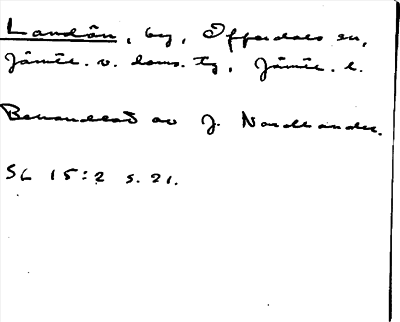 Landön, by, Offerdals sn,
Jämtl. v. doms. tg, Jämtl. l.
Behandlat av J. Nordlander.
SL 15:2 s. 21.